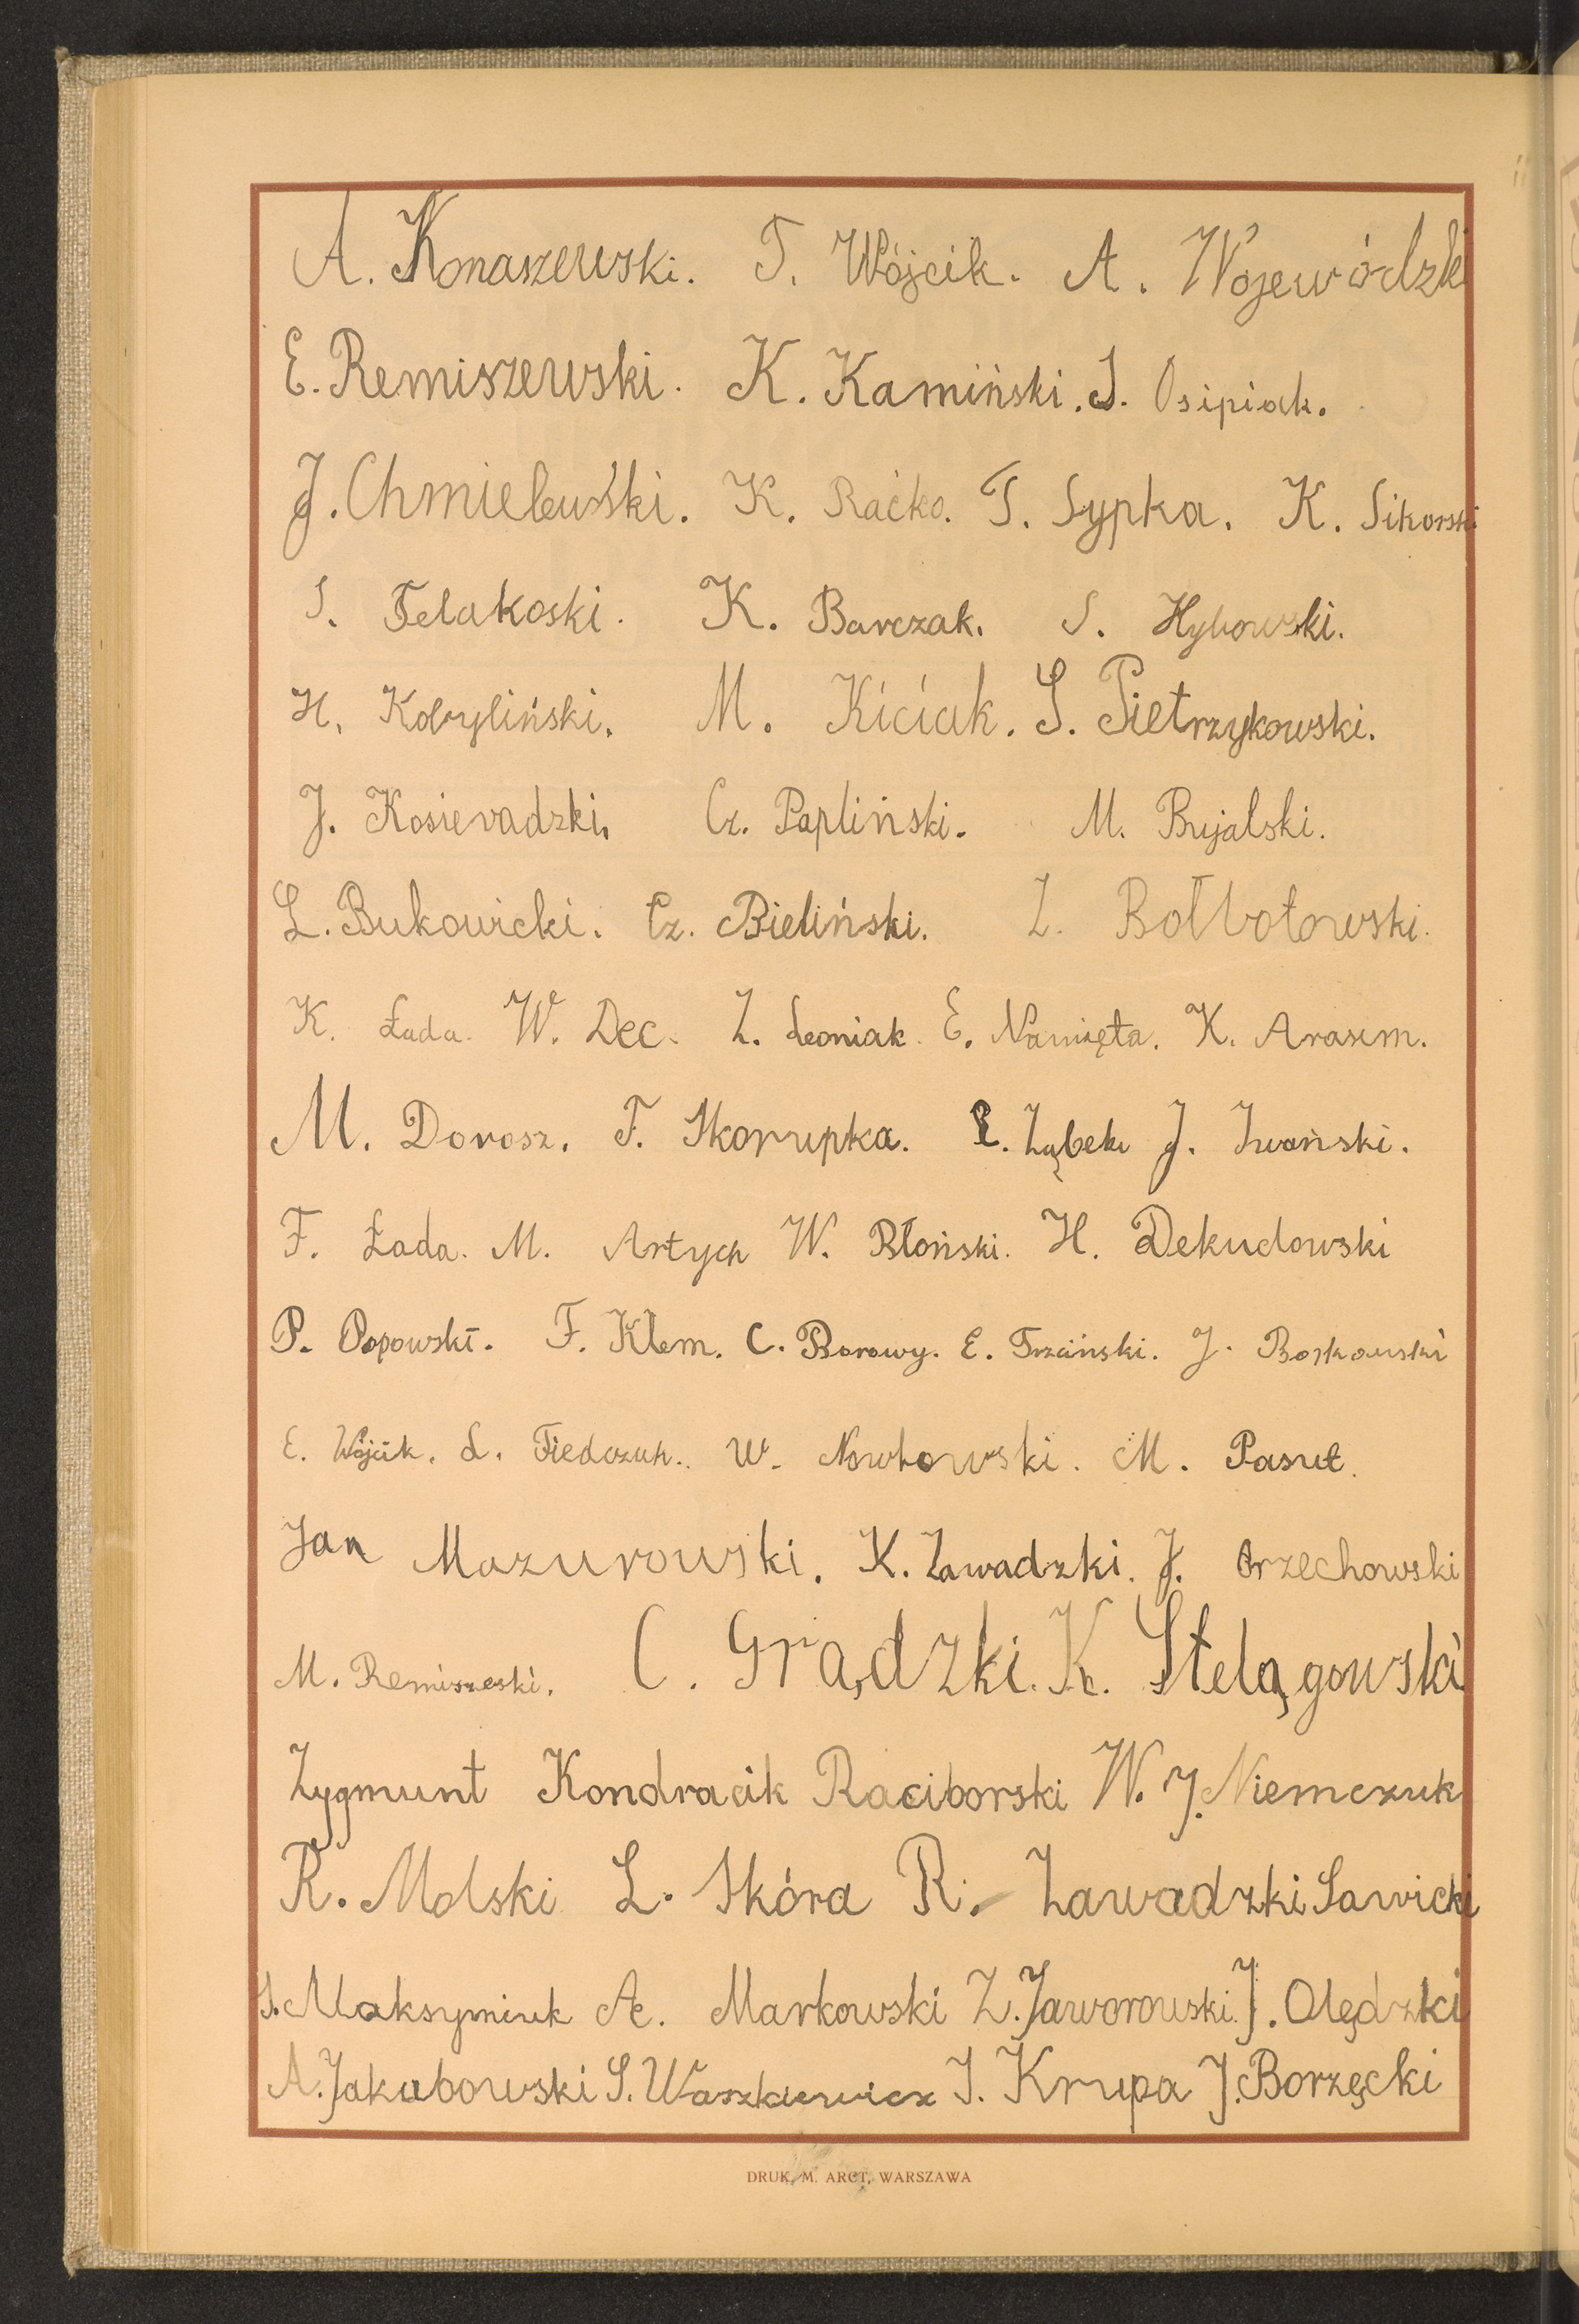 A. Konaszewski. T. Wójcik. A. Wojewódzki
E. Remiszewski. K. Kamiński. S. Osipiak.
J. Chmielewski. K. Raćko. T. Sypka. K. Sikorski
S. Felakoski. K. Barczak. S. Hybowski.
H. Kobyliński. M. Kiciak. S. Pietrzykowski.
J. Kosieradzki. Cz. Papliński. M. Bujalski.
L. Bukowicki. Cz. Bieliński. Z. Bołbotowski.
K. Łada. W. Dec. Z. Leoniak. E. Namięta. K. Arasim.
M. Dorosz. F. Skorupka. E. Ząbek J. Iwański.
F. Łada. M. Artych W. Błoński. H. Dekudowski
P. Popowski. F. Klem. C. Borowy. E. Trzciński. J. Borkowski
E. Wójcik. L. Fiedczuk. W. Nowkowski. M. Pasut.
Jan Mazurowski. K. Zawadzki. J. Orzechowski
M. Remiszeski. C. Grądzki. K. Stelągowski
Zygmunt Kondracik Raciborski W. J. Niemczuk
R. Molski L. Skóra R. Zawadzki Sawicki
S. Maksymiuk A. Markowski Z. Jaworowski J. Olędzki
A. Jakubowski S. Waszkiewicz J. Krupa J. Borzęcki
DRUK. M. ARCT, WARSZAWA